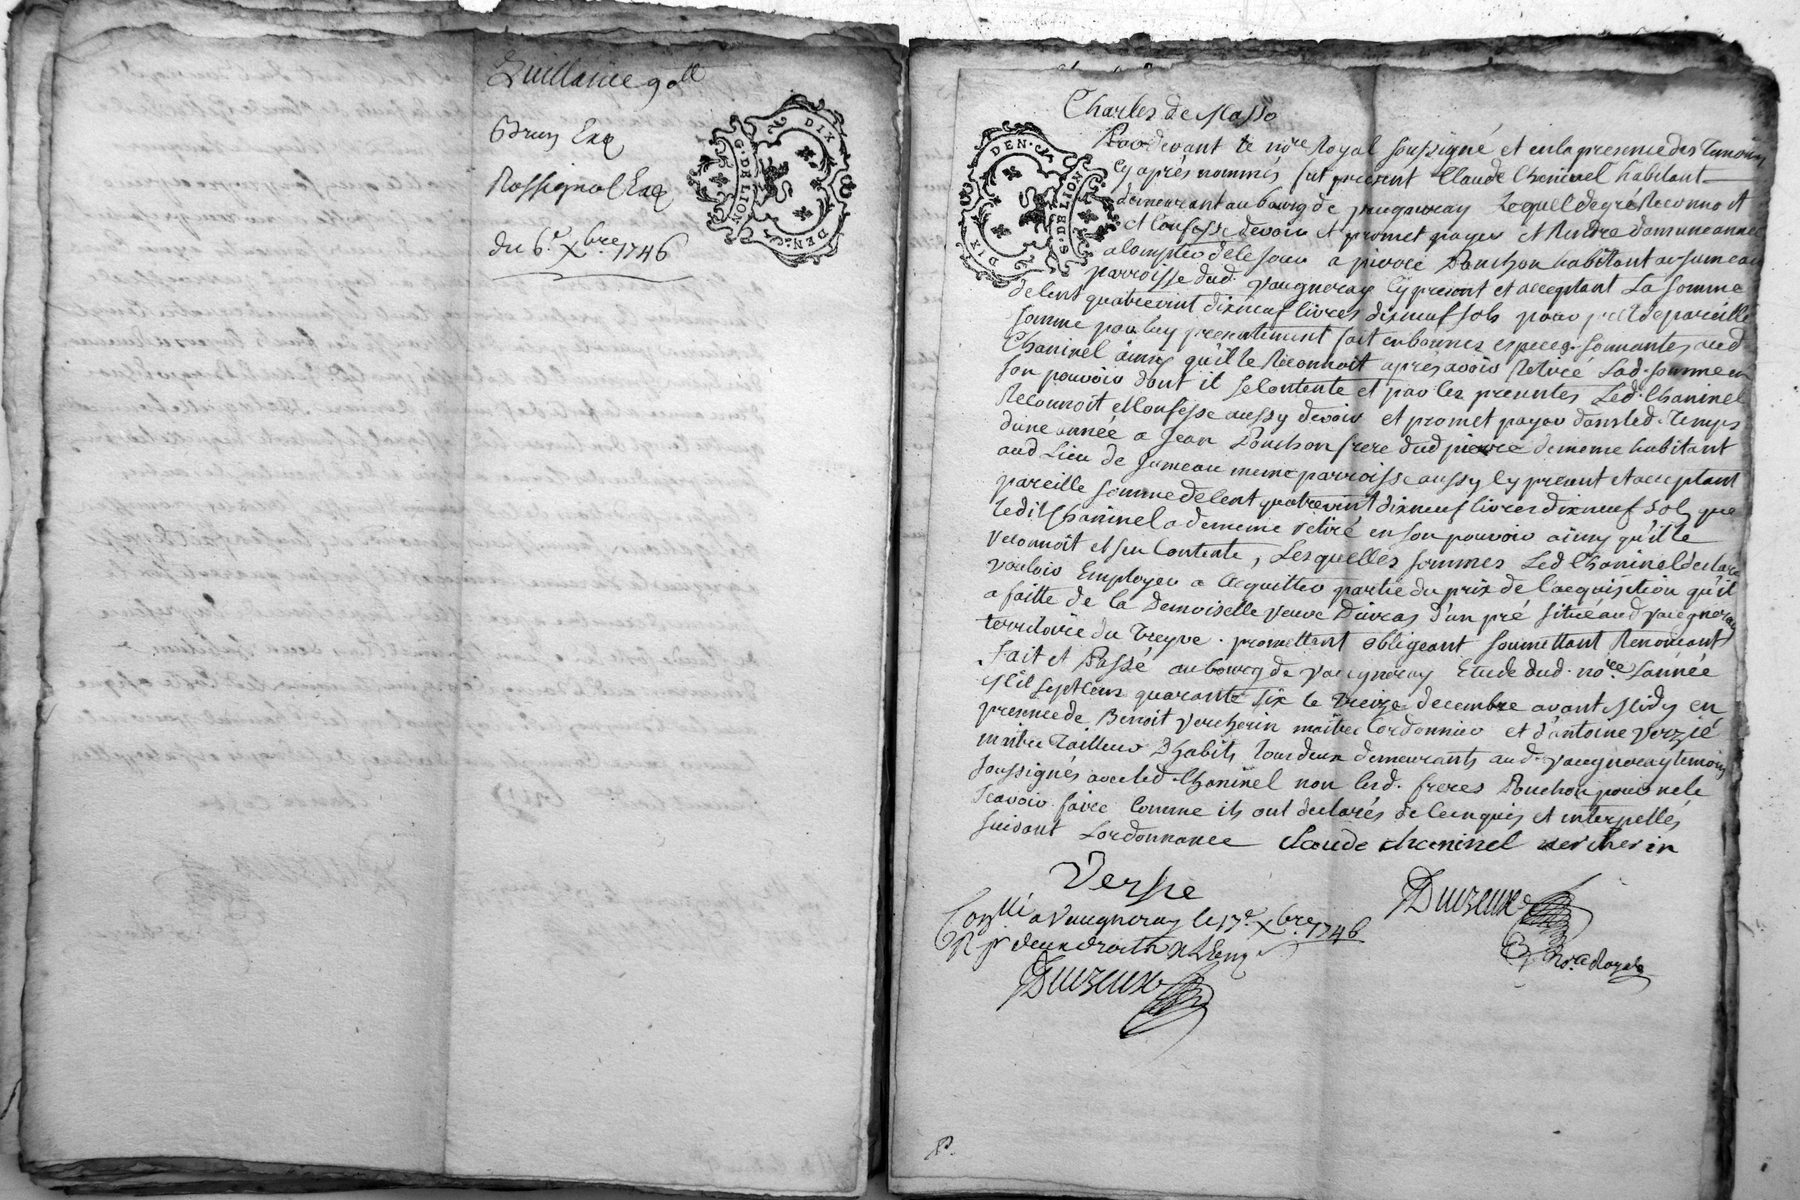 Quittance
Brun Exq
Rossignol Exq
du 6.e Xbre 1746
DIX DEN.
G. DE LION
Charles de Masso
Pardevant le nore Royal soussigné et en la presence des temoins
cy après nommés fut present Claude Chaninel habitant
demeurant au bourg de Vaugneray Lequel de gré Reconnoit
et Confesse devoir et promet payer et Rendre dans une année
a Compter de ce jour a pierre Ponchon habitant au Jumeau
parroisse dud. Vaugneray Cy present et acceptant La Somme
de Cent quatrevint dixneuf livres dixneuf sols pour pret de pareille
somme par luy presentement fait en bonnes especes sonnantes aud.
Chaninel ainsy qu'il le Reconnoit après avoir Retiré Lad. Somme en
son pouvoir dont il se Contente et par les presentes Led. Chaninel
Reconnoit et Confesse aussy devoir et promet payer dans led. temps
d'une année a Jean Ponchon frere dud pierre de meme habitant
aud Lieu de Jumeau meme parroisse aussy Cy present et acceptant
pareille somme de Cent quatrevint dixneuf livres dixneuf sols que
ledit Chaninel a de meme retiré en son pouvoir ainsy qu'il le
reconnoit et s'en Contente, Lesquelles sommes Led Chaninel declare
vouloir Employer a acquitter partie du prix de l'acquisition qu'il
a faitte de la Demoiselle veuve d'un pré situé aud Vaugneray
territoire du Treyve. promettant obligeant soumettant Renonceant
Fait et Passé au bourg de Vaugneray Etude dud. nore L'année
Mil sept Cens quarante six le treize decembre avant Midy en
presence de Benoit Vercherin maitre Cordonnier et d'antoine Verzié
maitre tailleur d'habits tous deux demeurants aud. Vaugneray temoins
soussignés avec led. Chaninel non lesd. freres Ponchon pour ne le
scavoir faire Comme ils ont declarés de Ce enquis et interpellés
suivant Lordonnance Claude chaninel vercherin
Versie
Duizeux
nore Royal
Conllé a Vaugneray le 13.e Xbre 1746
R pr deux droits
Duizeux
DIX DEN.
G. DE LION